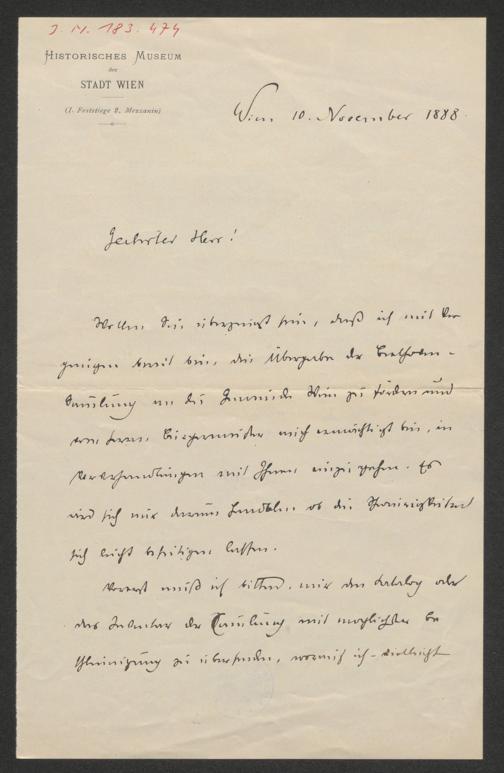 J. N. 183.474
HISTORISCHES MUSEUM
der
STADT WIEN
(I. Feststiege 2, Mezzanin)
Wien 10. November 1888.
Geehrter Herr!
Wollen Sie überzeugt sein, daß ich mit Ver
gnügen bereit bin, die Übergabe der Beethoven-
Samlung an die Gemeinde Wien zu fördern und
vom Herrn Bürgermeister auch ermächtigt bin, in
Verhandlungen mit Ihnen einzugehen. Es
wird sich nur darum handeln ob die Schwierigkeiten
sich leicht beseitigen lassen.
Vorerst muß ich bitten, mir den Katalog oder
das Inventar der Samlung mit möglichster Be
schleunigung zu übersenden, worauf ich vielleicht